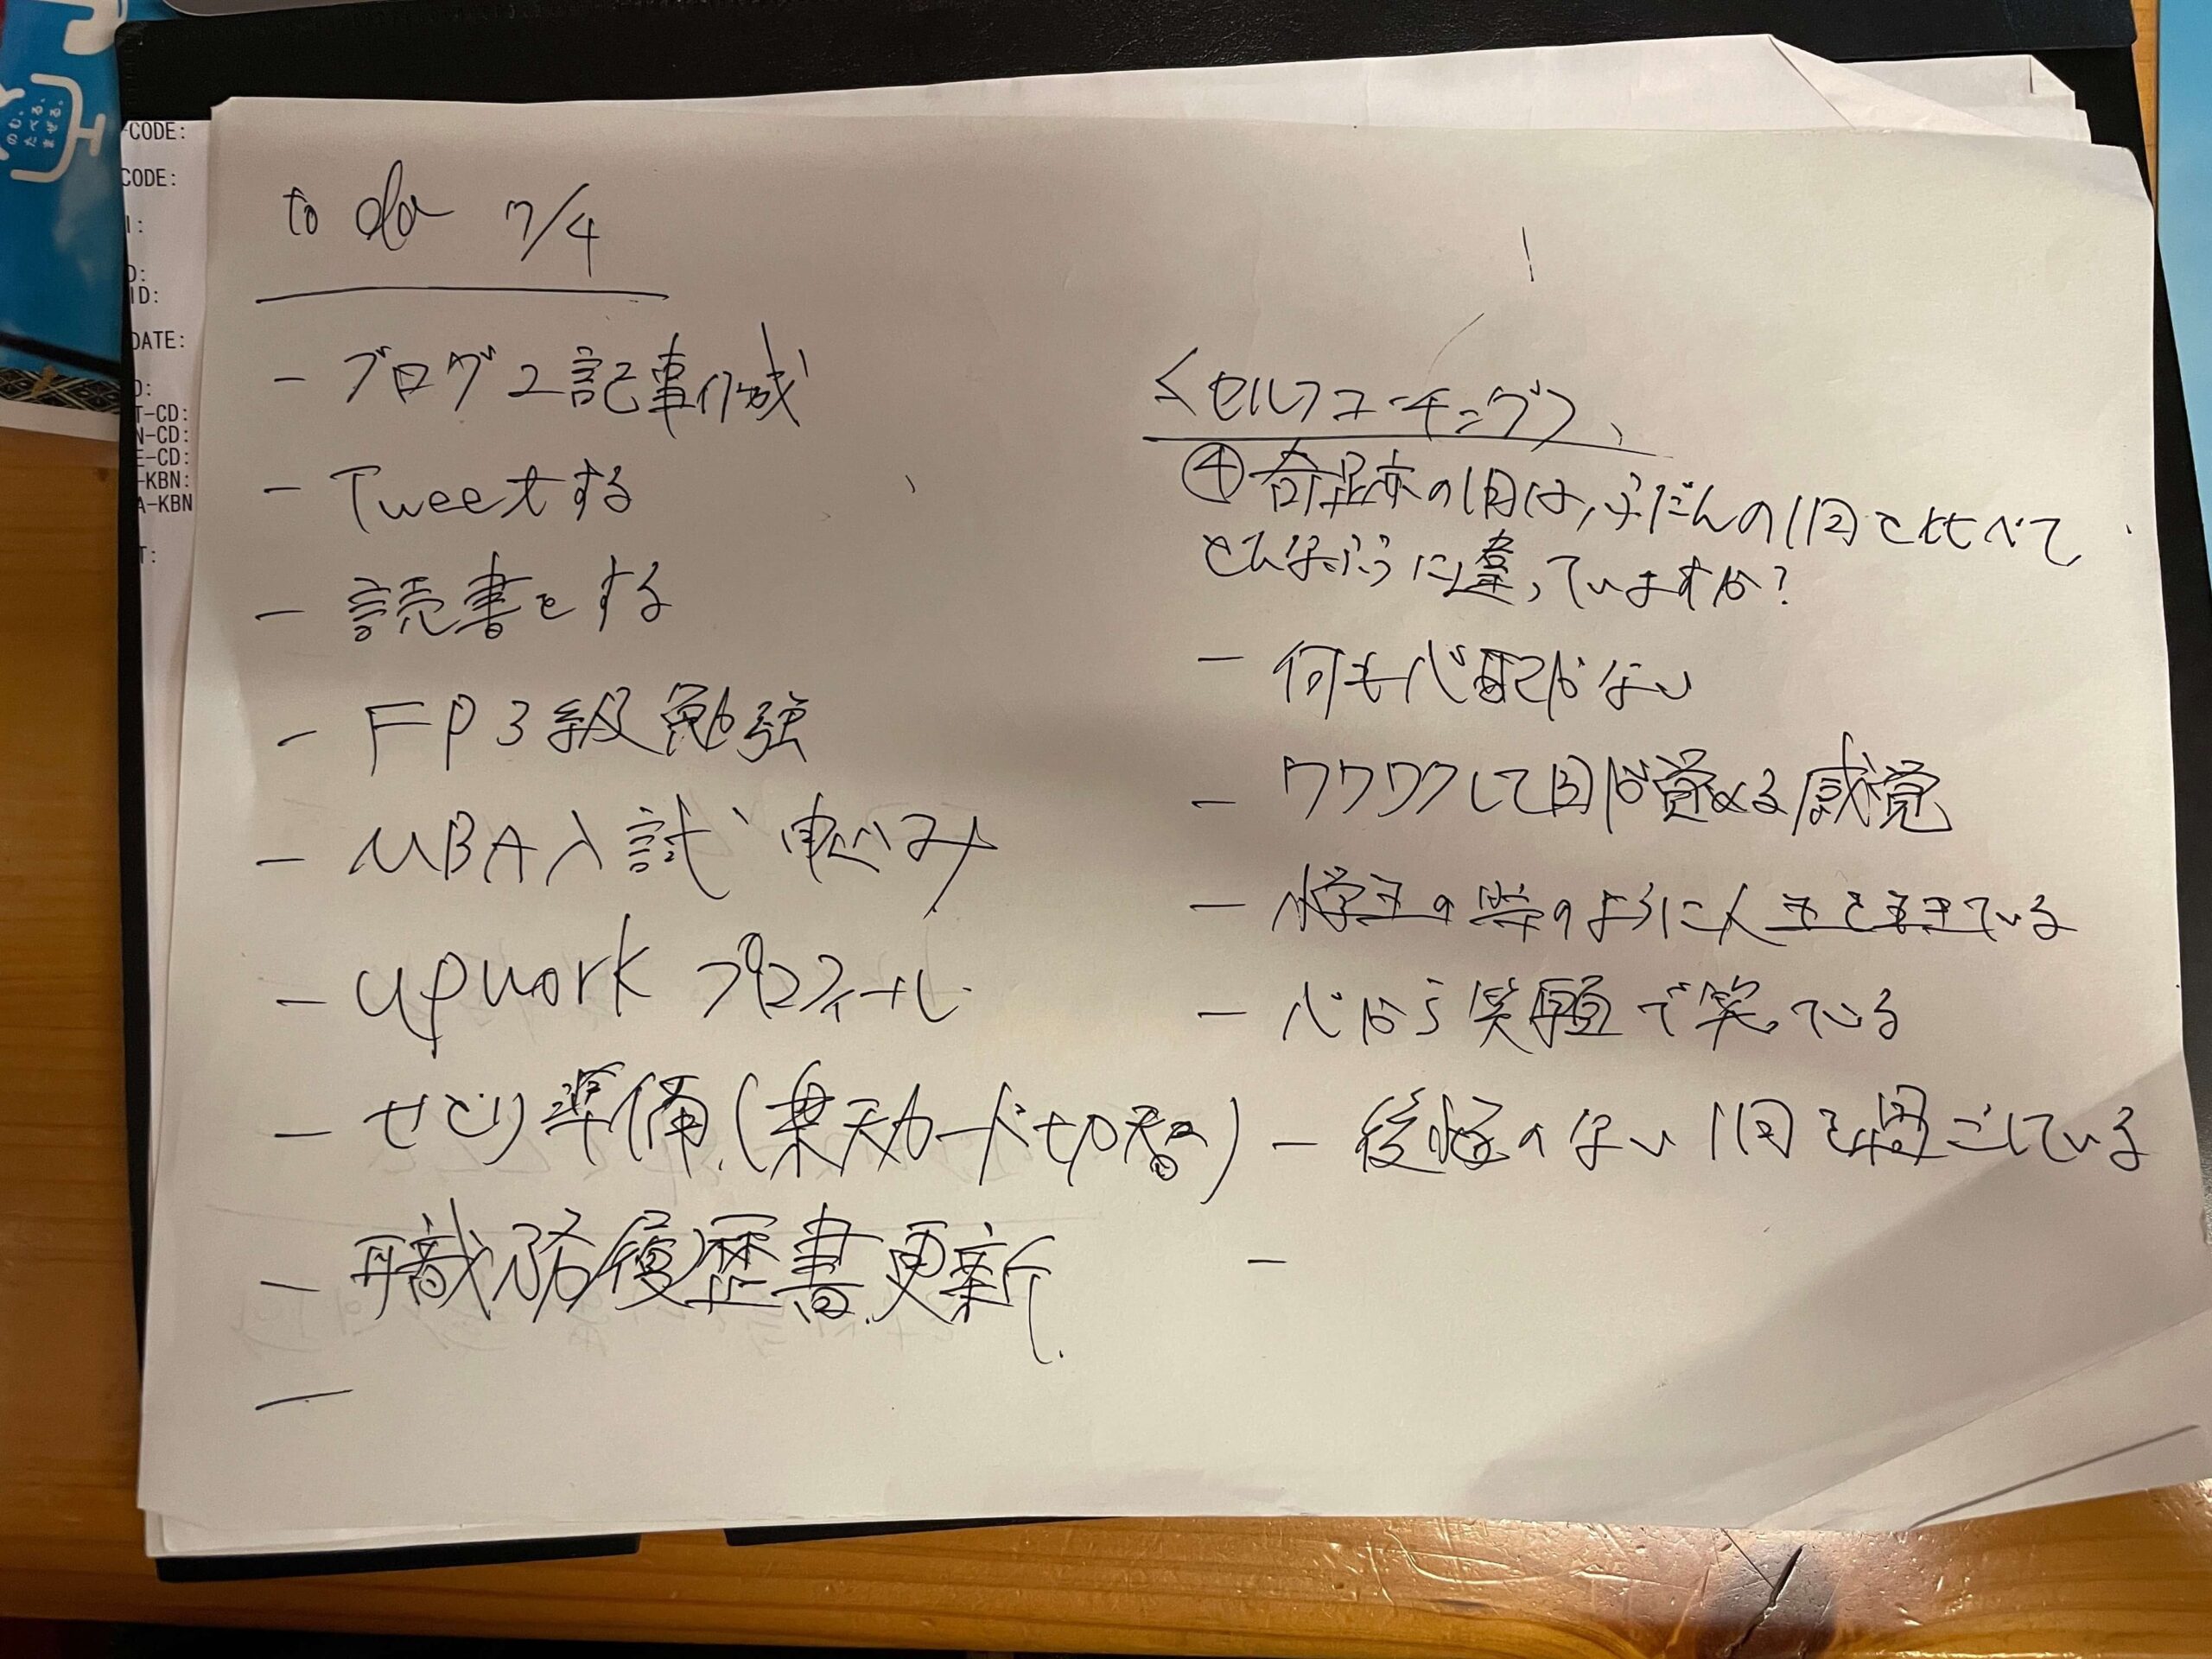 のむ、
たべる、
まぜる。
-CODE:
CODE:
D:
ID:
DATE:
D:
T-CD:
N-CD:
E-CD:
-KBN:
A-KBN
T:
to do 7/4
- ブログ2記事作成
- Tweetする
- 読書をする
- FP3級勉強
- MBA入試申込み
- upwork プロフィール
- せどり準備(楽天カード切替)
- 職務履歴書更新
-
<セルフコーチング>
④奇跡の1日は,ふだんの1日と比べて
どんなふうに違っていますか?
- 何も心配がない
- ワクワクして目が覚める感覚
- 小学生の時のように人生を生きている
- 心から笑顔で笑っている
- 後悔のない1日を過ごしている
-